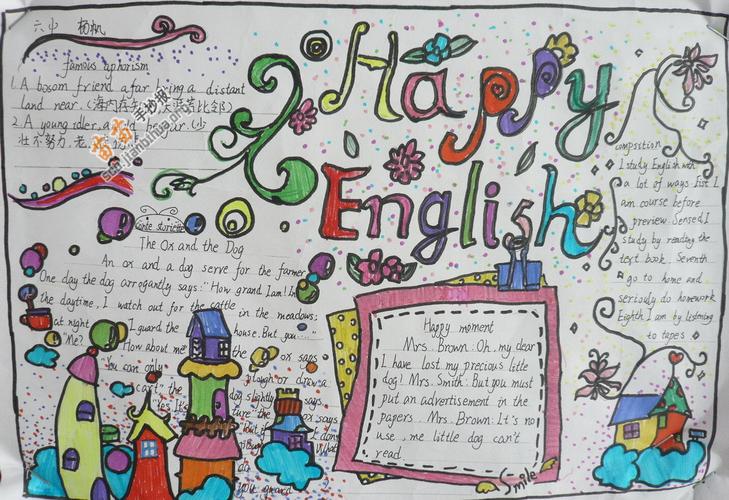 六中 杨帆
Happy
English
famous aphorism
1. A bosom friend afar bring a distant
land near. (海内存知己,天涯若比邻)
2. A young idler, a
壮不努力,老
苗苗手抄报
Conte stories
The Ox and the Dog
An ox and a dog serve for the farmer.
One day the dog arrogantly says: "How grand I am! In
the daytime, I watch out for the cattle in the meadows;
at night I guard the house. But you...."
"Me? How about me" the ox says
"You can only plough or draw a
cart" the dog slightly says
"Yes. It's
you guard
Happy moment
Mrs. Brown: Oh, my dear
I have lost my precious little
dog! Mrs. Smith: But you must
put an advertisement in the
papers. Mrs. Brown: It's no
use, me little dog can't
read.
Smile
composition
I study English with
a lot of ways. Fist I
am course before
preview. Sensed I
study by reading the
text book. Seventh
go to home and
seriously do homework
Eighth I am by listening
to tapes